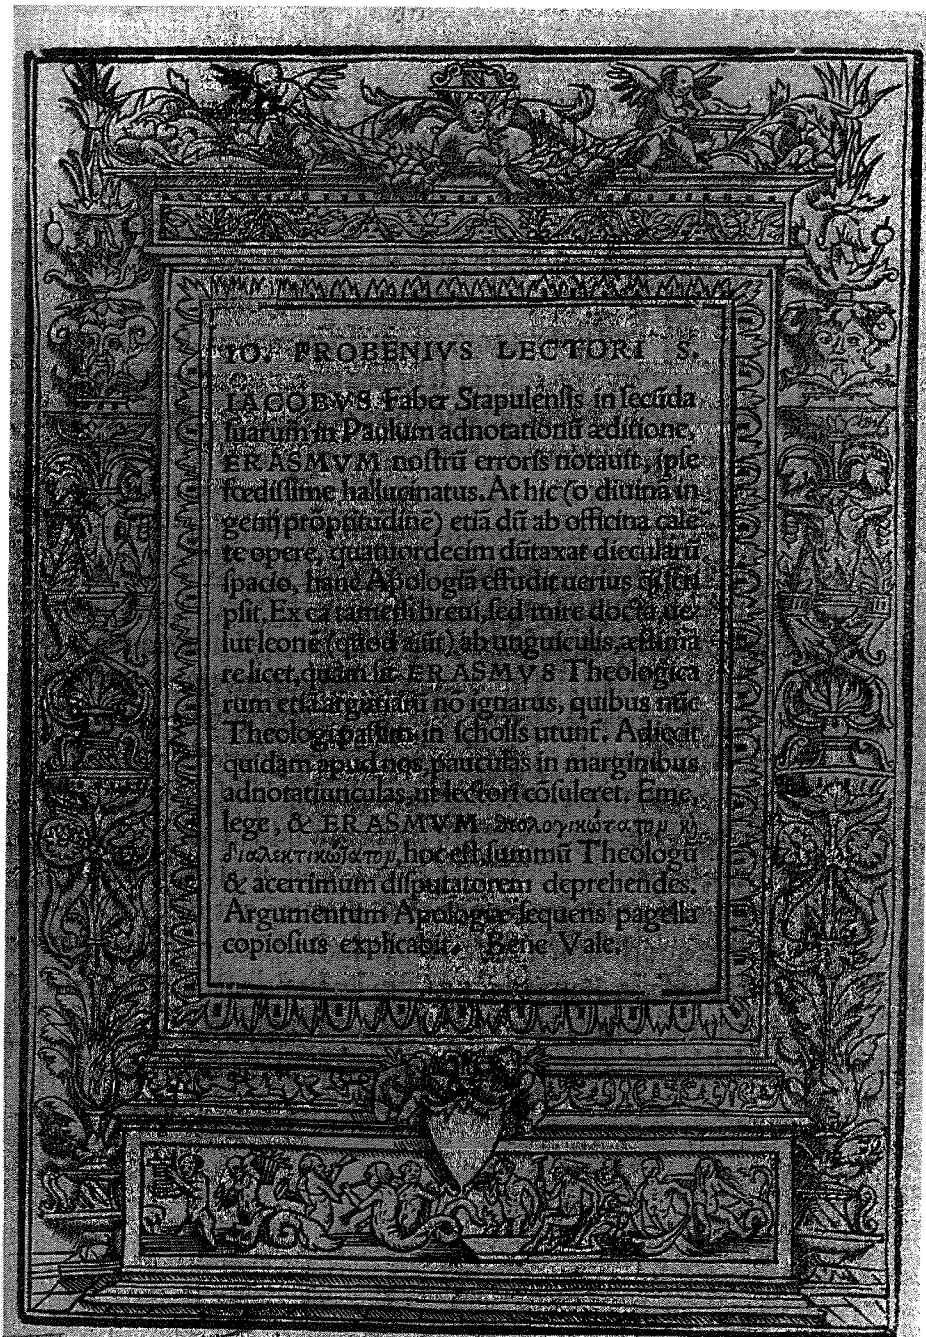 IO. FROBENIVS LECTORI S.
IACOBVS Faber Stapulẽsis in secũda
suarum in Paulum adnotationũ æditione,
ERASMVM nostrũ erroris notauit, ipse
fœdissime hallucinatus. At hic (o diuina in
genij prõptitudinẽ) etiã dũ ab officina cale
te opere, quattuordecim dũtaxat diecularũ
spacio, hanc Apologiã effudit uerius q̃ scri
psit. Ex ea tametsi breui, sed mire docta, ue/
lut leonẽ (quod aiũt) ab unguiculis, æstima
re licet, quam sit ERASMVS Theologica
rum etiã argutiarũ nõ ignarus, quibus nũc
Theologi passim in scholis utunt̃. Adiecit
quidam apud nos, pauculas in marginibus
adnotatiunculas, ut lectori cõsuleret. Eme,
lege, & ERASMVM θεολογικώτατομ κỳ
διαλεκτικώτατομ, hoc est, summũ Theologũ
& acerrimum disputatorem deprehendes.
Argumentum Apologiæ sequens pagella
copiosius explicabit. Bene Vale.